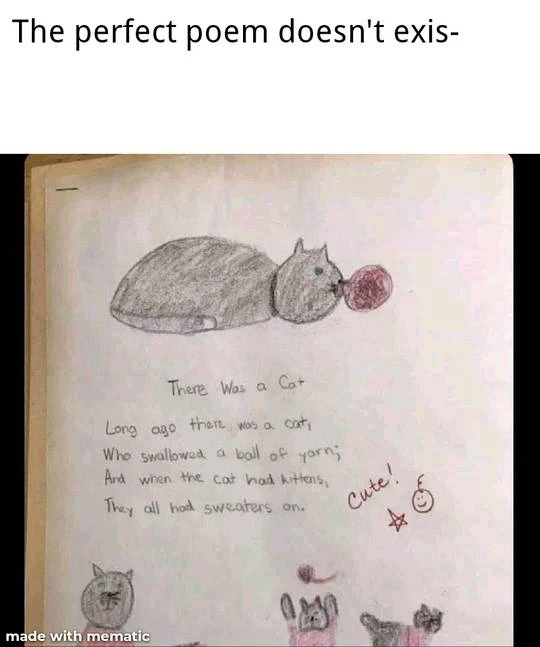 The perfect poem doesn't exis-
There Was a Cat
Long ago there was a cat,
Who swallowed a ball of yarn;
And when the cat had kittens,
They all had sweaters on.
Cute!
made with mematic